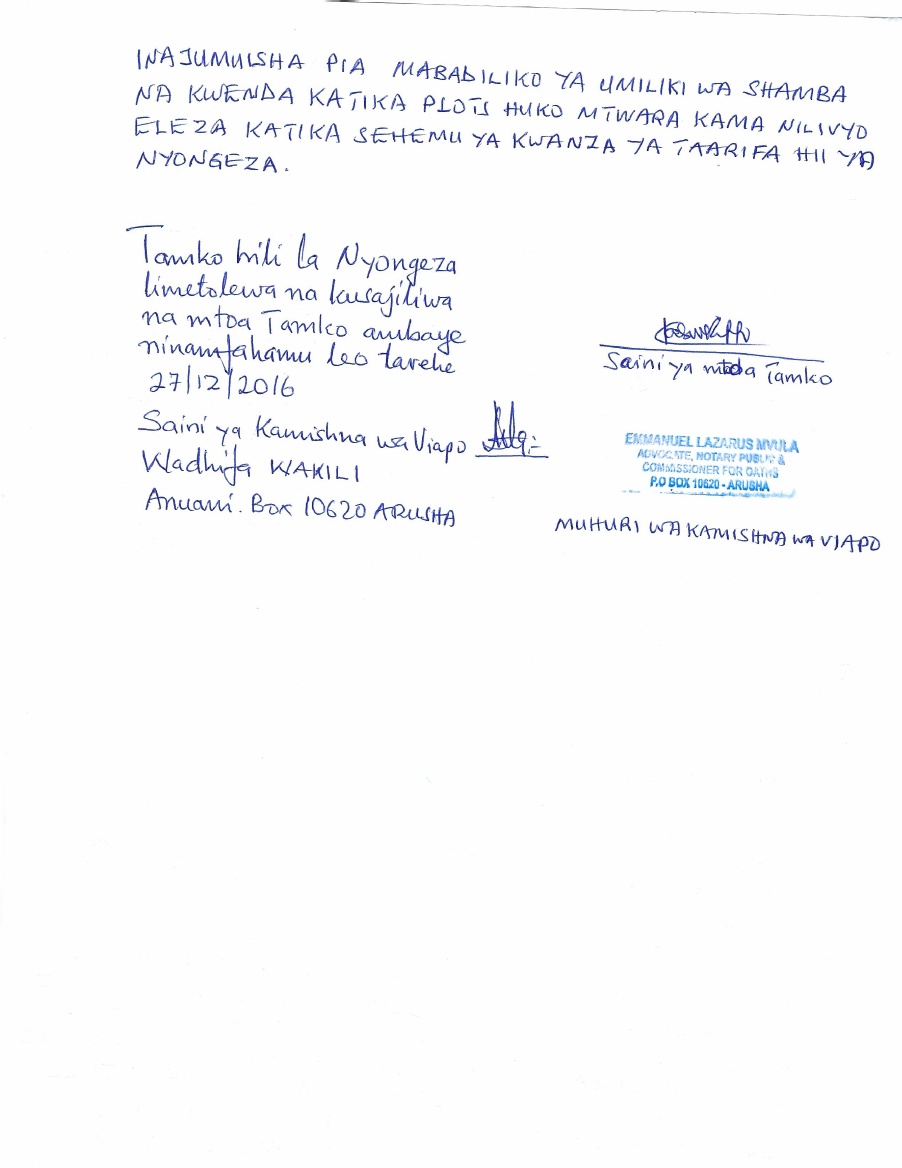 INAJUMUISHA PIA MABADILIKO YA UMILIKI WA SHAMBA
NA KWENDA KATIKA PLOTS HUKO MTWARA KAMA NILIVYO
ELEZA KATIKA SEHEMU YA KWANZA YA TAARIFA HII YA
NYONGEZA.
Tamko hili la Nyongeza
limetolewa na kusajiliwa
na mtoa Tamko ambaye
ninamfahamu leo tarehe
27/12/2016
Saini ya mtoa Tamko
Saini ya Kamishna wa Viapo
Wadhifa WAKILI
Anuani. Box 10620 ARUSHA
EMMANUEL LAZARUS MVULA
ADVOCATE, NOTARY PUBLIC &
COMMISSIONER FOR OATHS
P.O BOX 10620 - ARUSHA
MUHURI WA KAMISHNA WA VIAPO